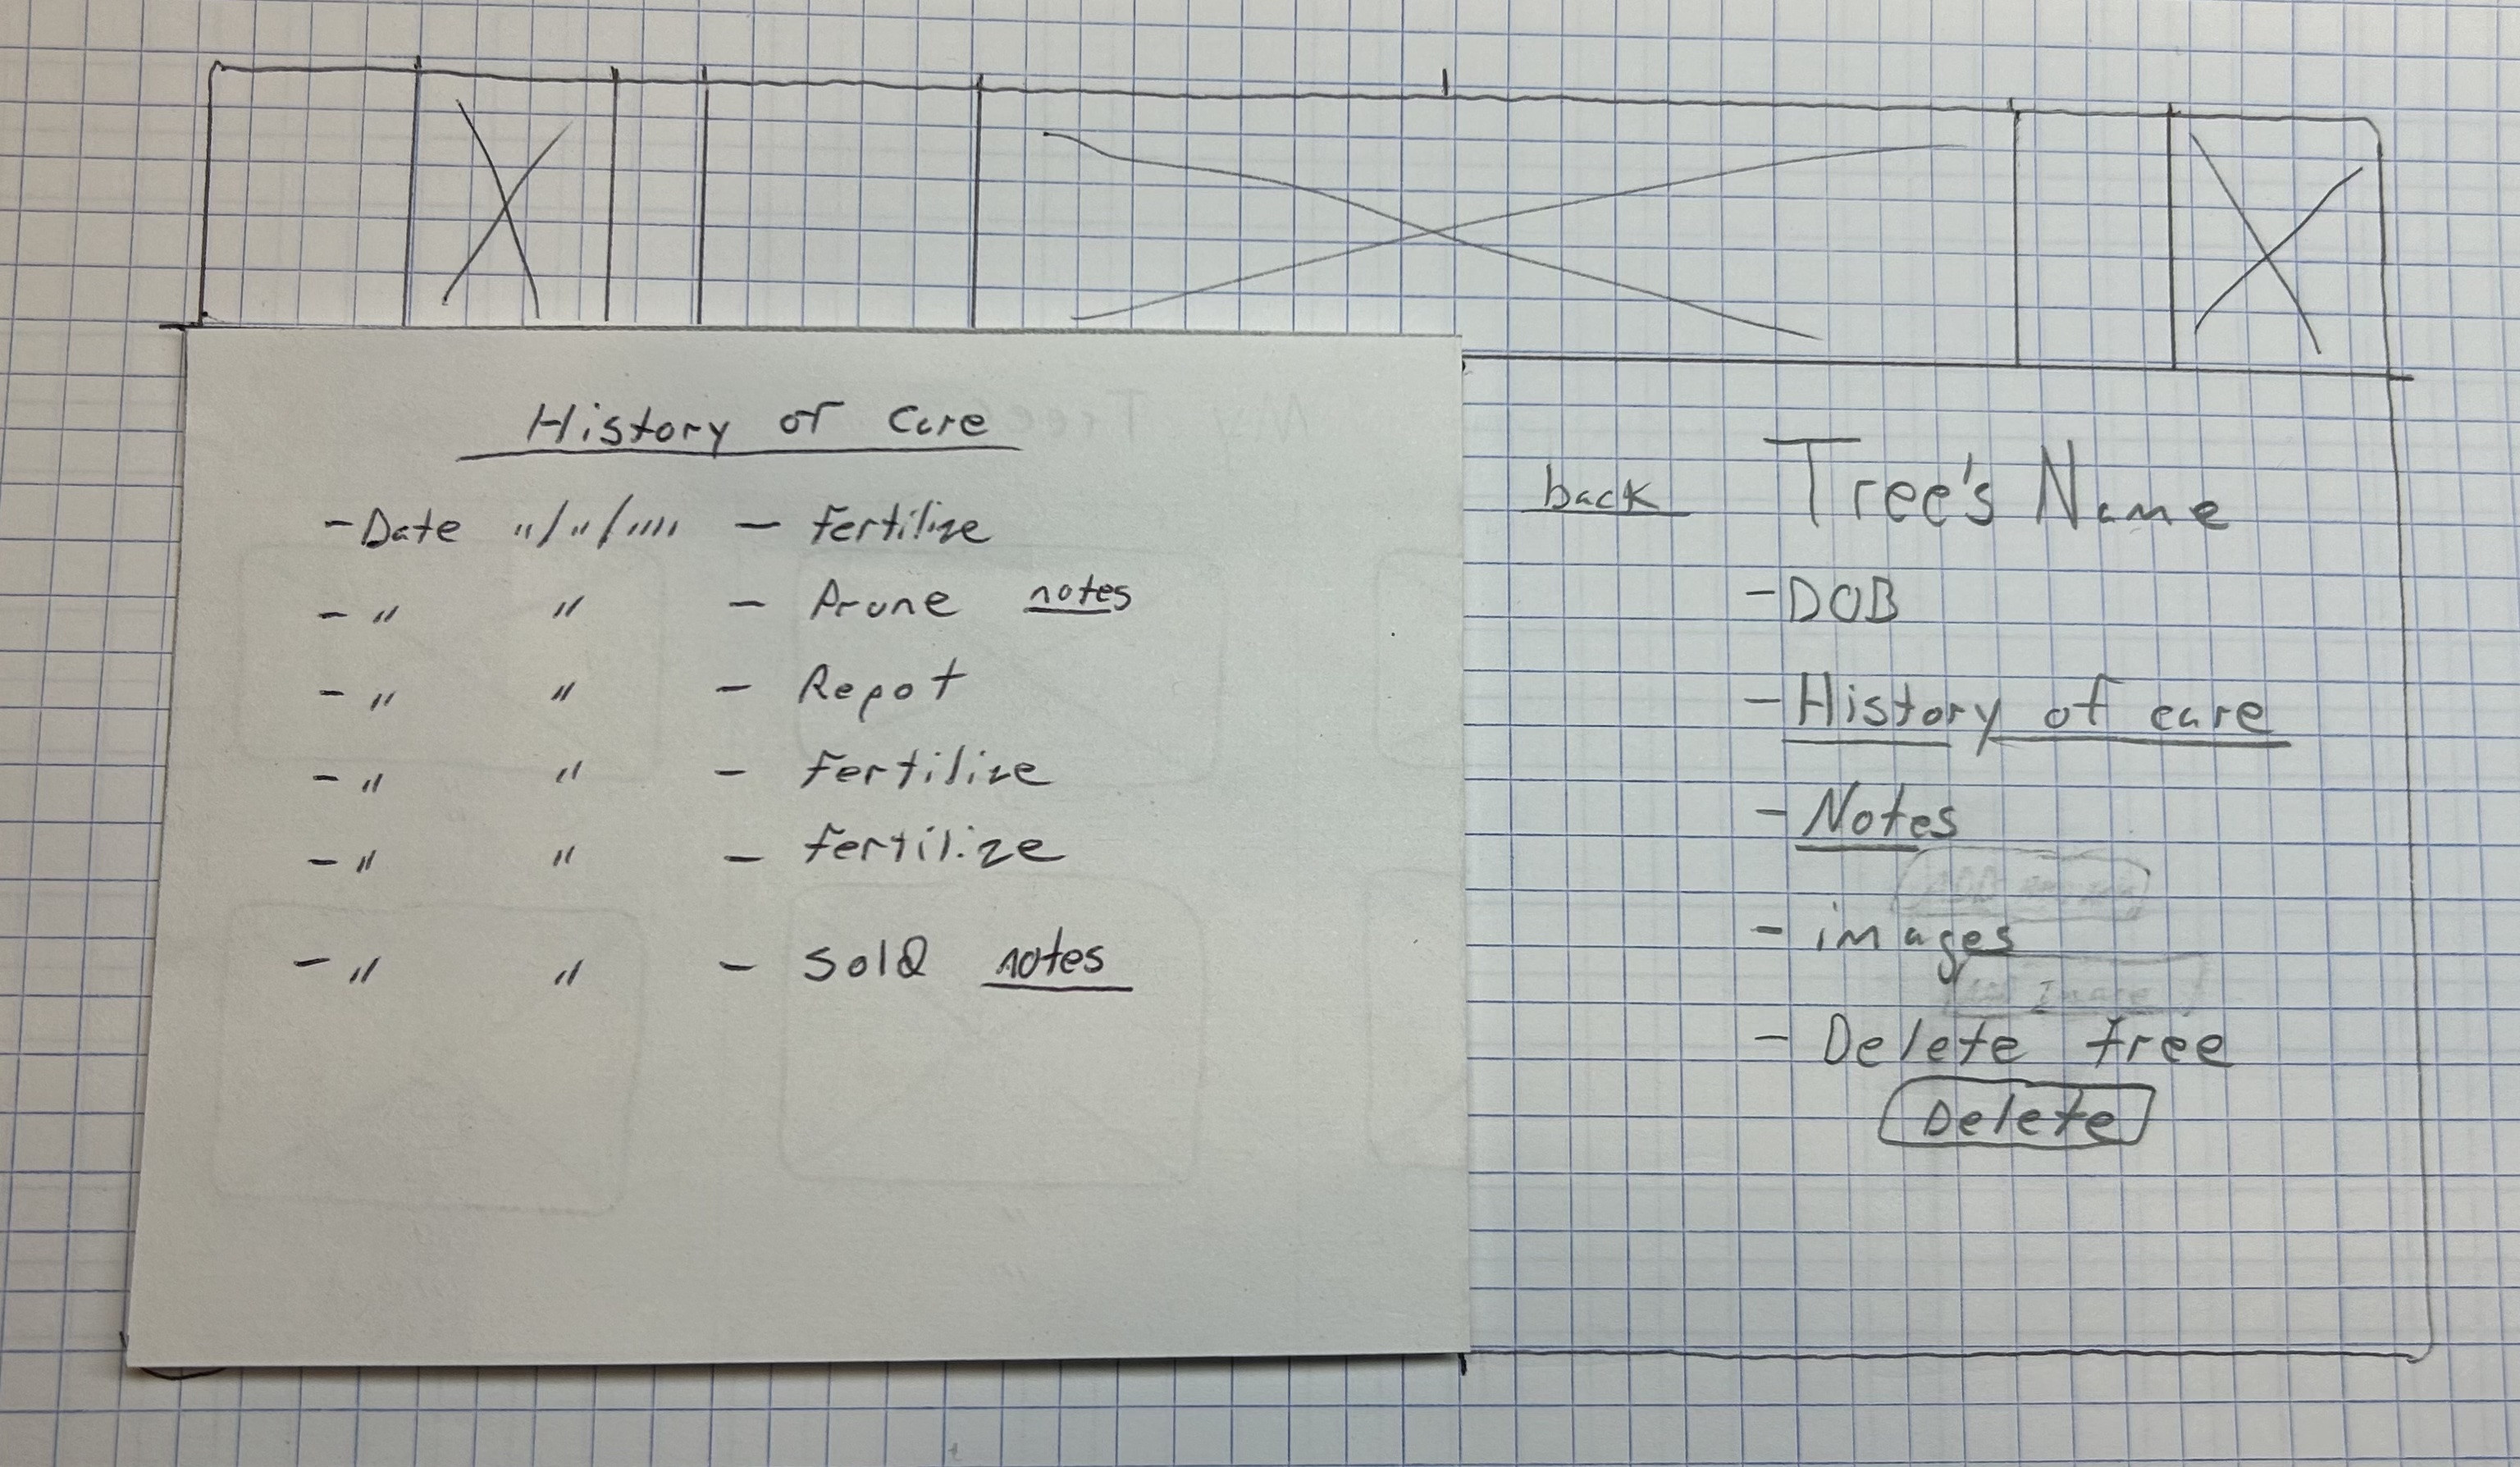 History of Care
- Date "/"/"" - Fertilize
- " " - Prune notes
- " " - Repot
- " " - Fertilize
- " " - Fertilize
- " " - Sold notes
back
Tree's Name
- DOB
- History of care
- Notes
- images
Image
- Delete tree
Delete
My Trees